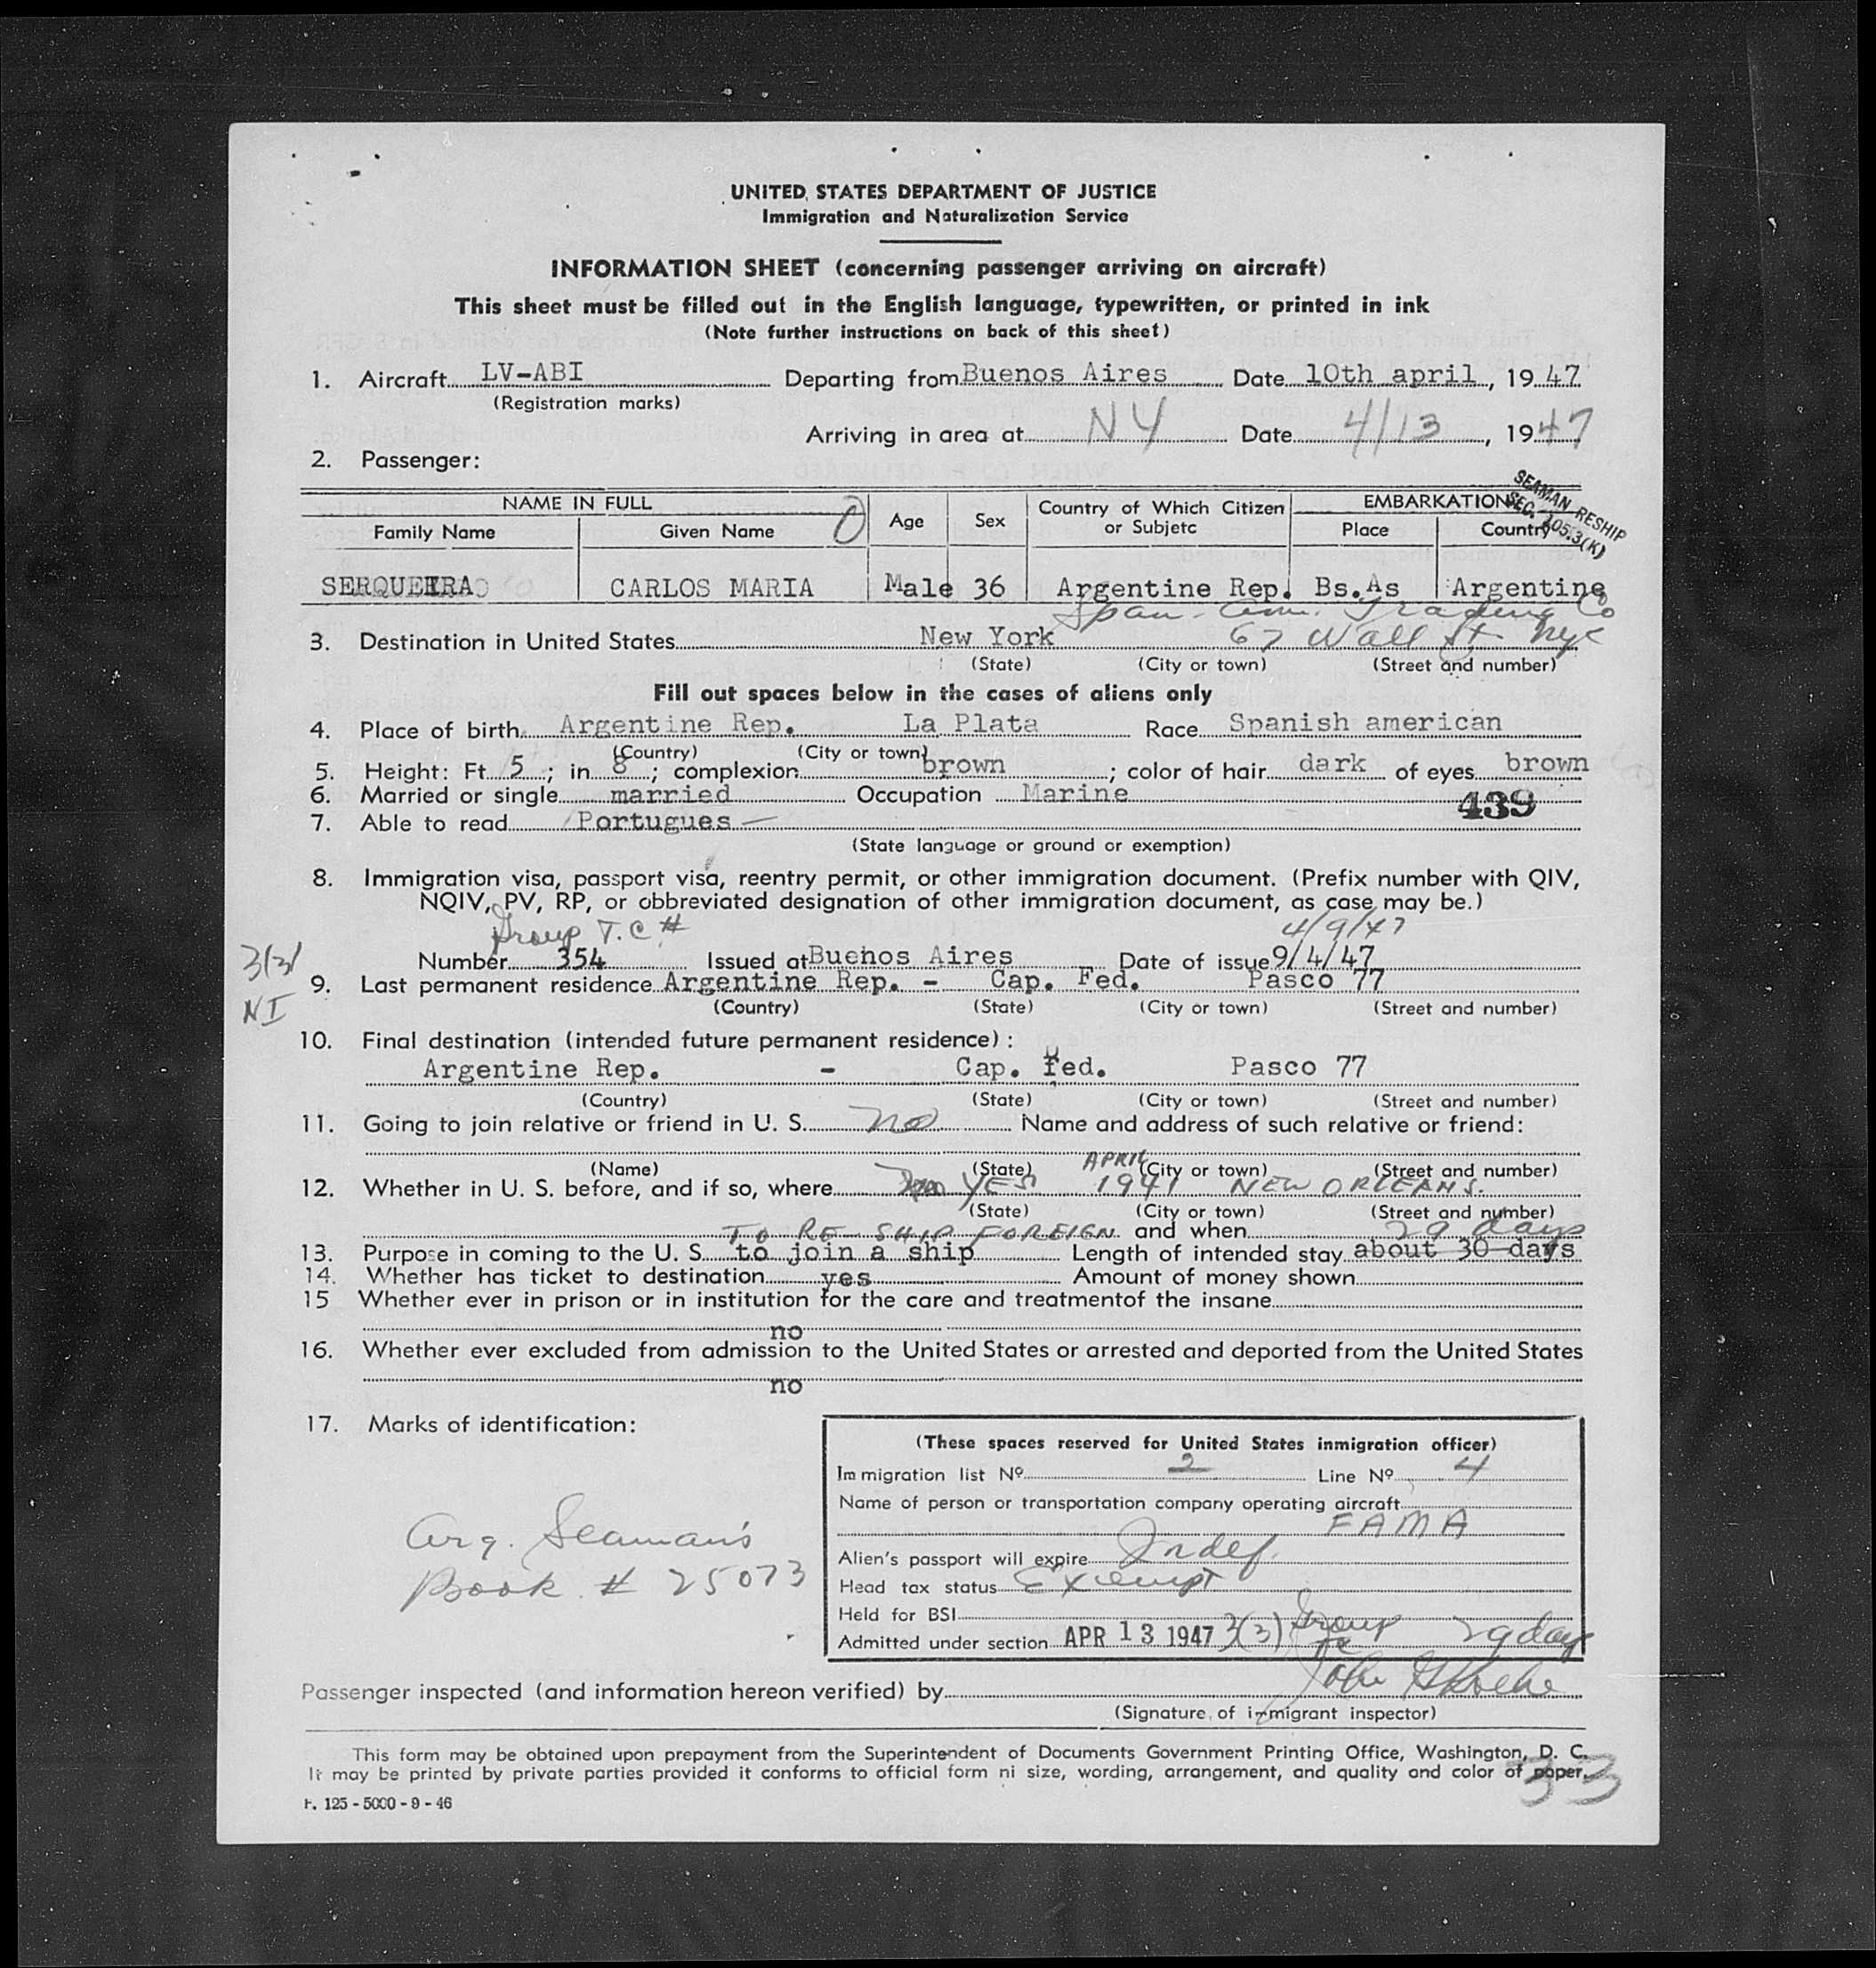 UNITED STATES DEPARTMENT OF JUSTICE
Immigration and Naturalization Service
INFORMATION SHEET (concerning passenger arriving on aircraft)
This sheet must be filled out in the English language, typewritten, or printed in ink
(Note further instructions on back of this sheet)
1. Aircraft LV-ABI Departing from Buenos Aires Date 10th april, 1947
(Registration marks)
Arriving in area at NY Date 4/13, 1947
2. Passenger:
SEAMAN RESHIP
SEC. 105.3(K)
NAME IN FULL O Age Sex Country of Which Citizen or Subjetc EMBARKATION
Family Name Given Name Place Country
CARLOS MARIA Male 36 Argentine Rep. Bs.As Argentine
Span. Am. Trading Co
3. Destination in United States New York 67 Wall St NYC
(State) (City or town) (Street and number)
Fill out spaces below in the cases of aliens only
4. Place of birth Argentine Rep. La Plata Race Spanish american
(Country) (City or town)
5. Height: Ft. 5; in 8; complexion brown; color of hair dark of eyes brown
6. Married or single married Occupation Marine
439
7. Able to read Portugues —
(State language or ground or exemption)
8. Immigration visa, passport visa, reentry permit, or other immigration document. (Prefix number with QIV,
NQIV, PV, RP, or obbreviated designation of other immigration document, as case may be.)
Group T.C # 4/9/47
3(3)
Number 354 Issued at Buenos Aires Date of issue 9/4/47
9. Last permanent residence Argentine Rep. - Cap. Fed. Pasco 77
NI
(Country) (State) (City or town) (Street and number)
10. Final destination (intended future permanent residence):
Argentine Rep. - Cap. Fed. Pasco 77
(Country) (State) (City or town) (Street and number)
11. Going to join relative or friend in U. S. no Name and address of such relative or friend:
(Name) (State) (City or town) (Street and number)
APRIL
12. Whether in U. S. before, and if so, where YES 1941 NEW ORLEANS.
(State) (City or town) (Street and number)
TO RE-SHIP FOREIGN and when 29 days
13. Purpose in coming to the U. S. to join a ship Length of intended stay about 30 days
14. Whether has ticket to destination yes Amount of money shown
15 Whether ever in prison or in institution for the care and treatmentof the insane
no
16. Whether ever excluded from admission to the United States or arrested and deported from the United States
no
17. Marks of identification:
Arg. Seaman's
Book # 25073
(These spaces reserved for United States inmigration officer)
Immigration list Nº 2 Line Nº 4
Name of person or transportation company operating aircraft
FAMA
Alien's passport will expire Indef.
Head tax status Exempt
Held for BSI
Admitted under section APR 13 1947 3(3) Group TC 29 days
Passenger inspected (and information hereon verified) by John
(Signature of immigrant inspector)
This form may be obtained upon prepayment from the Superintendent of Documents Government Printing Office, Washington, D. C.
It may be printed by private parties provided it conforms to official form ni size, wording, arrangement, and quality and color of paper.
33
F. 125 - 5000 - 9 - 46